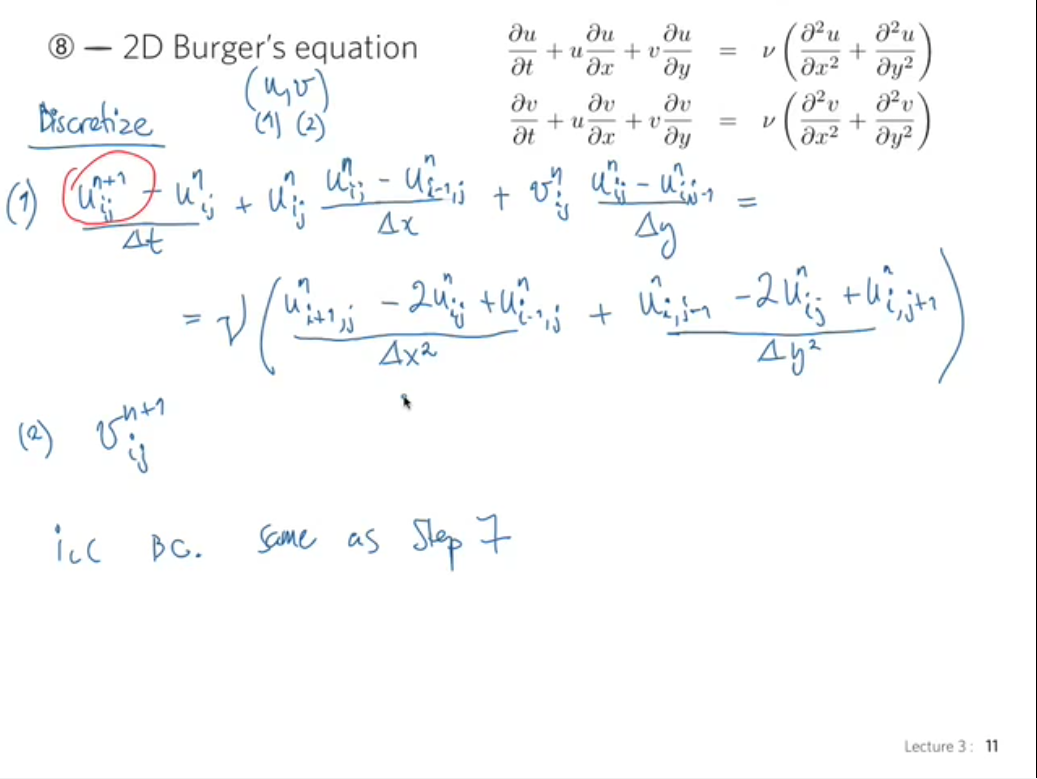 ⑧ — 2D Burger's equation
∂u/∂t + u ∂u/∂x + v ∂u/∂y = ν (∂²u/∂x² + ∂²u/∂y²)
∂v/∂t + u ∂v/∂x + v ∂v/∂y = ν (∂²v/∂x² + ∂²v/∂y²)
(u, v)
(1) (2)
Discretize
(1) (u^{n+1}_{ij} - u^n_{ij})/Δt + u^n_{ij} (u^n_{ij} - u^n_{i-1,j})/Δx + v^n_{ij} (u^n_{ij} - u^n_{i,j-1})/Δy =
= ν ( (u^n_{i+1,j} - 2u^n_{ij} + u^n_{i-1,j})/Δx² + (u^n_{i,j-1} - 2u^n_{ij} + u^n_{i,j+1})/Δy² )
(2) v^{n+1}_{ij}
BC. same as Step 7
Lecture 3 : 11